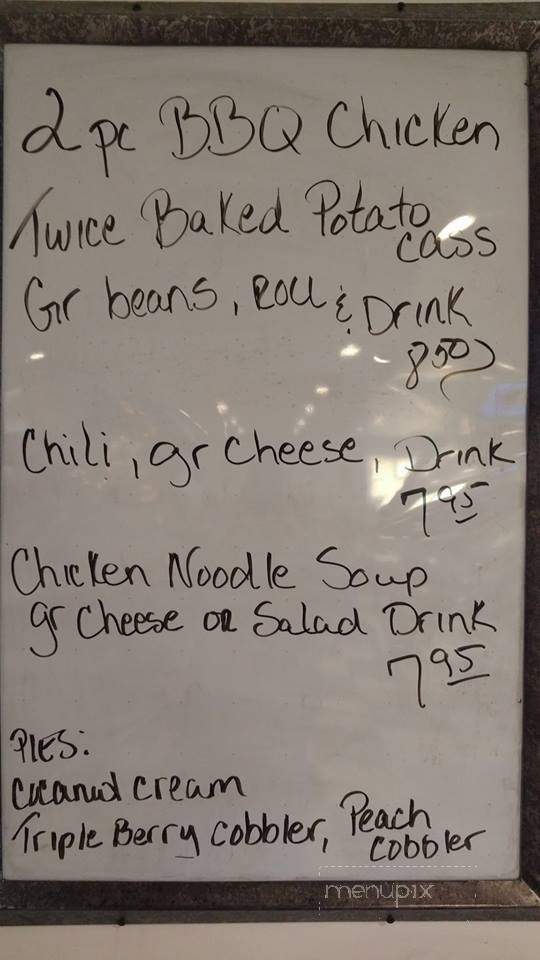 2 pc BBQ Chicken
Twice Baked Potato
cass
Gr beans, Roll & Drink
8.50
Chili, gr cheese, Drink
7 95
Chicken Noodle Soup
gr Cheese or Salad Drink
7 95
PIES:
cocanut cream
Triple Berry cobbler, Peach
cobbler
menupix